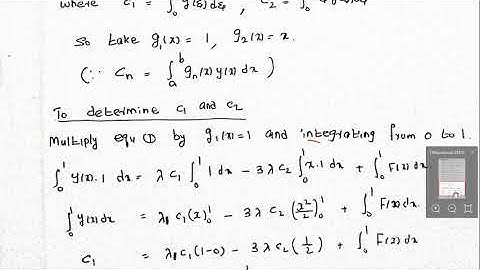 where c₁ = ∫₀¹ y(ξ) dξ, c₂ = ∫₀
So take g₁(x) = 1, g₂(x) = x.
(∵ Cₙ = ∫ₐᵇ gₙ(x) y(x) dx)
To determine c₁ and c₂
Multiply equ ① by g₁(x)=1 and integrating from 0 to 1.
∫₀¹ y(x).1 dx = λ c₁ ∫₀¹ 1 dx - 3λ c₂ ∫₀¹ x.1 dx + ∫₀¹ F(x) dx.
∫₀¹ y(x) dx = λ c₁ (x)₀¹ - 3λ c₂ (x²/2)₀¹ + ∫₀¹ F(x) dx.
c₁ = λ c₁ (1-0) - 3λ c₂ (1/2) + ∫₀¹ F(x) dx